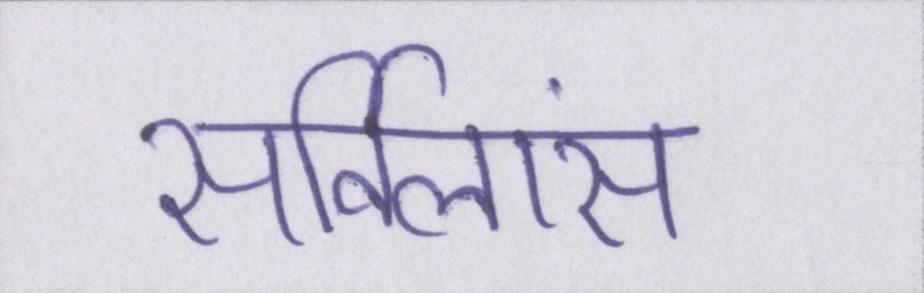 सर्विलांस